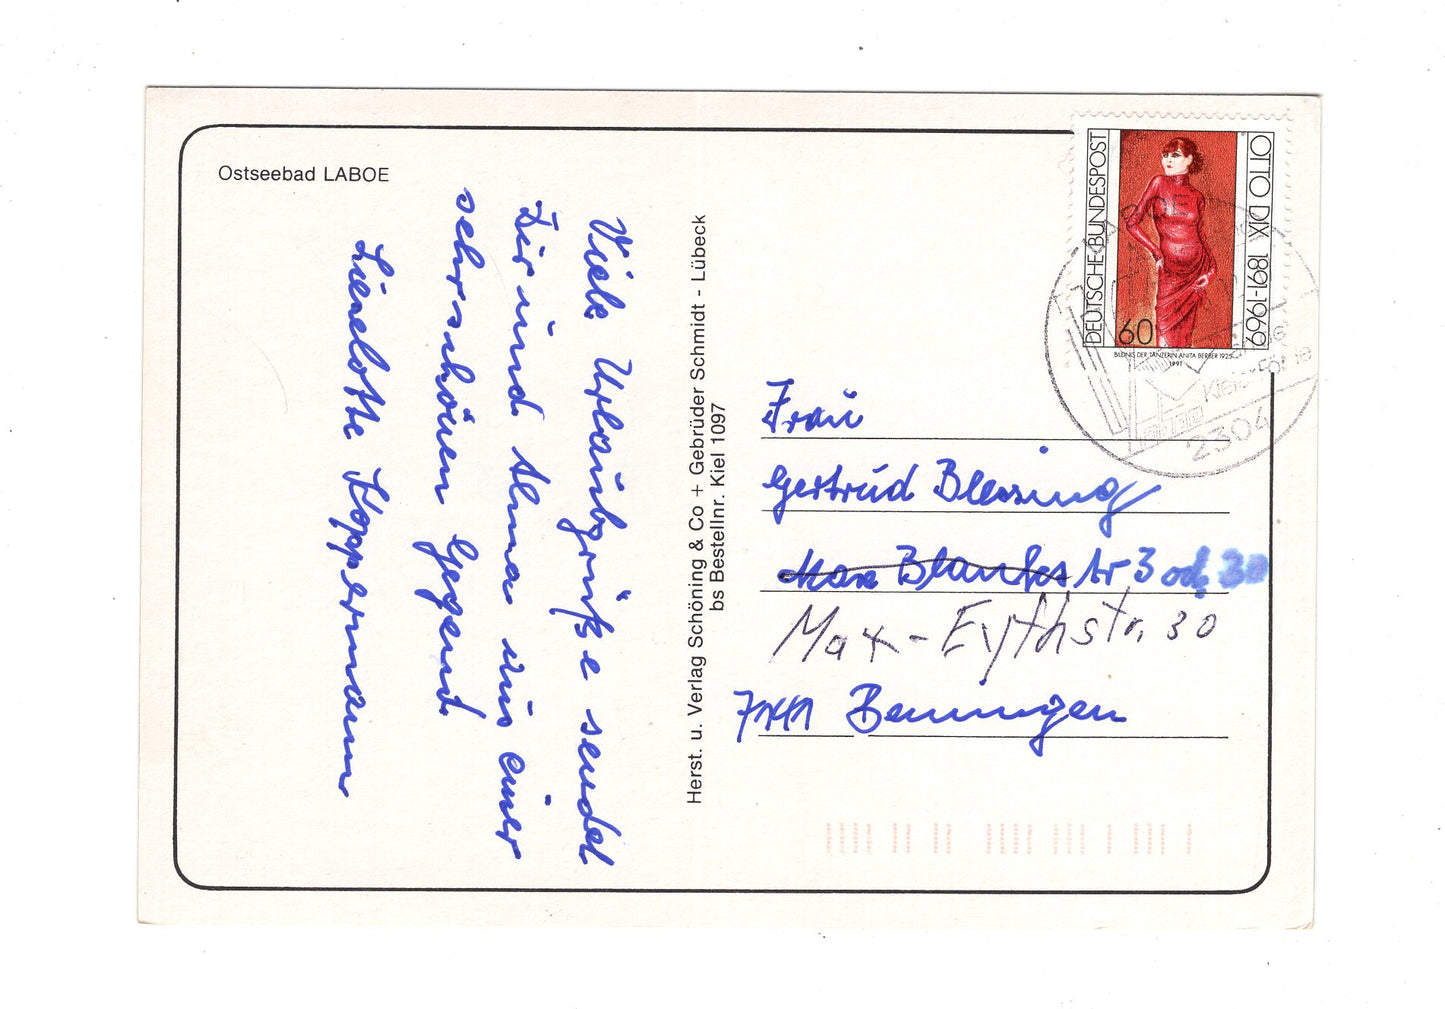 Ostseebad LABOE
Viele Urlaubsgrüße sendet
Dir und Alma aus einer
sehr schönen Gegend.
Lieselotte Koppermann
Herst. u. Verlag Schöning & Co + Gebrüder Schmidt - Lübeck
bs Bestellnr. Kiel 1097
DEUTSCHE BUNDESPOST
OTTO DIX 1891-1969
60
BILDNIS DER TÄNZERIN ANITA BERBER 1925
1991
2304
Frau
Gertrud Blessing
Max str 3 od. 30
Max-Eythstr. 30
7141 Benningen